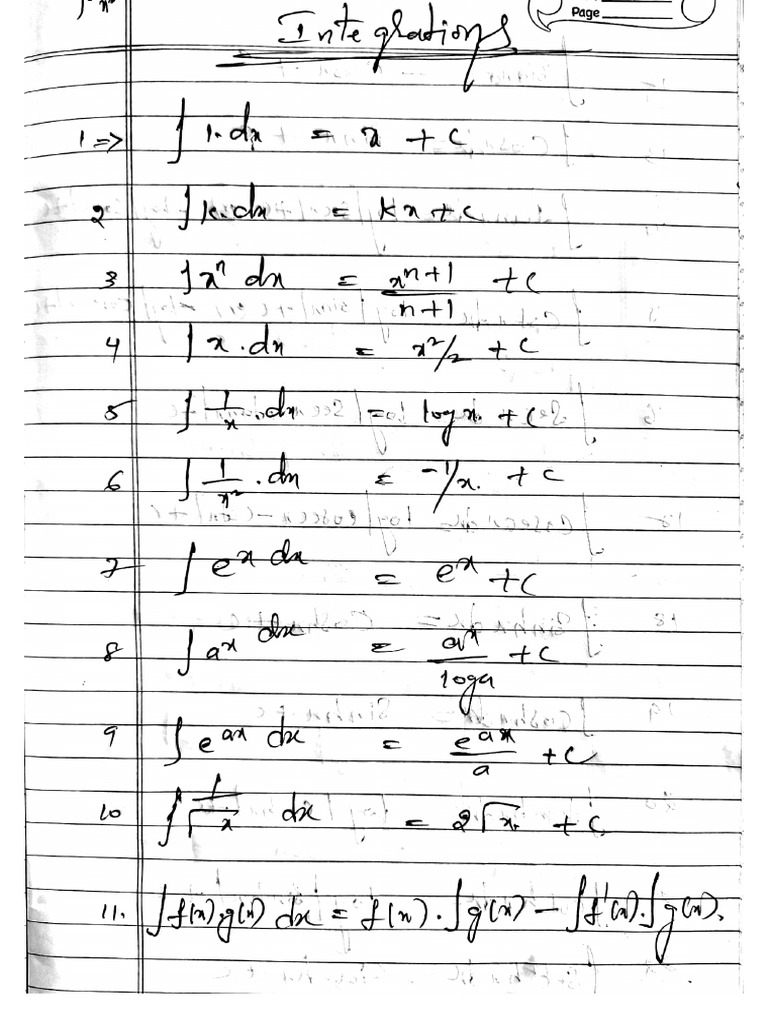 Page
Integrations
1 => ∫ 1. dx = x + c
2 ∫ k. dx = kx + c
3 ∫ xⁿ dx = xⁿ⁺¹/n+1 + c
4 ∫ x . dx = x²/2 + c
5 ∫ 1/x . dx = log x. + c
6 ∫ 1/x² . dx = -1/x. + c
7 ∫ eˣ dx = eˣ + c
8 ∫ aˣ dx = aˣ/log a + c
9 ∫ e^ax dx = e^ax/a + c
10 ∫ 1/√x dx = 2√x. + c
11. ∫ f(x).g(x) dx = f(x) . ∫ g(x) - ∫ f'(x).∫ g(x).